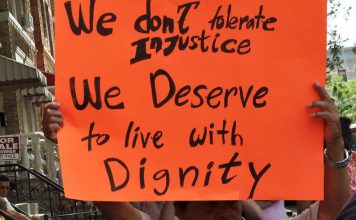 We don't tolerate
Injustice
We Deserve
to live with
Dignity
FOR
SALE